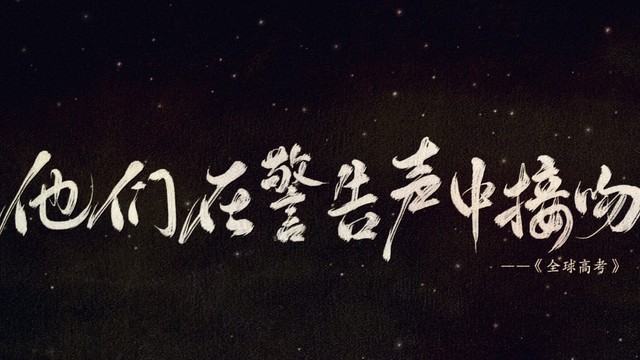 他们在警告声中接吻
——《全球高考》